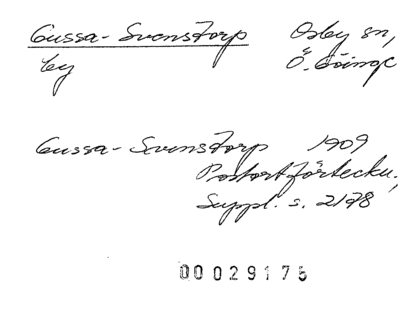 Gussa-Svenstorp Osby sn,
by Ö. Göinge
Gussa-Svenstorp 1909
Postortförteckn.,
Suppl. s. 2178
00029175